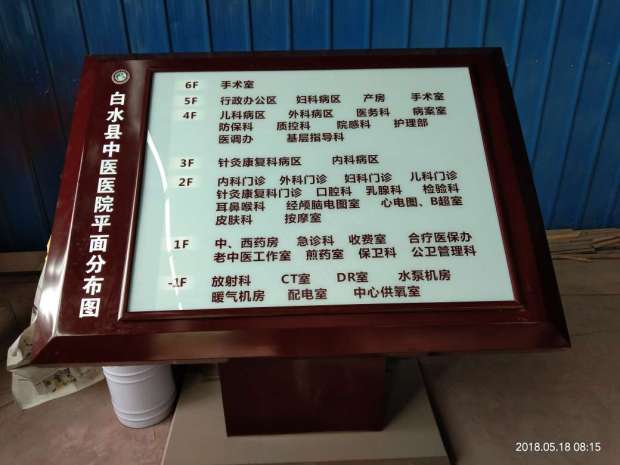 白水县中医医院平面分布图
6F 手术室
5F 行政办公区 妇科病区 产房 手术室
4F 儿科病区 外科病区 医务科 病案室
防保科 质控科 院感科 护理部
医调办 基层指导科
3F 针灸康复科病区 内科病区
2F 内科门诊 外科门诊 妇科门诊 儿科门诊
针灸康复科门诊 口腔科 乳腺科 检验科
耳鼻喉科 经颅脑电图室 心电图、B超室
皮肤科 按摩室
1F 中、西药房 急诊科 收费室 合疗医保办
老中医工作室 煎药室 保卫科 公卫管理科
-1F 放射科 CT室 DR室 水泵机房
暖气机房 配电室 中心供氧室
2018.05.18 08:15